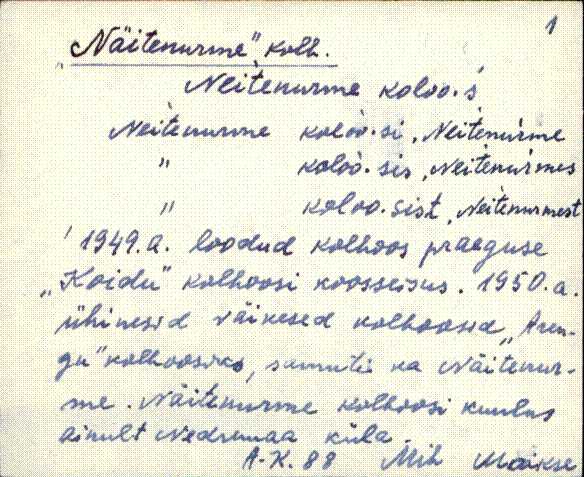 1
„Näitenurme" kolh.
Nèitènurme koloo·s
Nèitènurme koloò·si, Nèitènurme
" koloò·sis, Nèitènurmes
" koloo·sist, Nèitenurmest
1949.a. loodud kolhoos praeguse
„Koidu" kolhoosi koosseisus. 1950.a.
ühinesid väikesed kolhoosid „Aren-
gu" kolhoosiks, samuti ka Näitenur-
me. Näitenurme kolhoosi kuulus
ainult Nedremaa küla.
A-K. 88 Mih